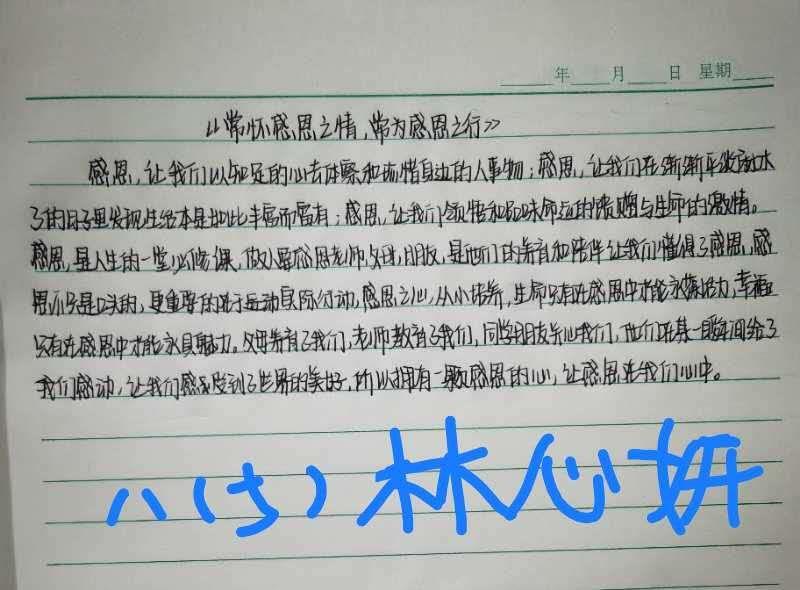 年 月 日 星期
《常怀感恩之情,常为感恩之行》
感恩,让我们以知足的心去体察和珍惜身边的人事物;感恩,让我们在渐渐平淡麻木
了的日子里发现生活本是如此丰富而富有;感恩,让我们领悟和品味命运的馈赠与生命的激情。
感恩,是人生的一堂必修课,做人要感恩老师,父母,朋友,是他们的养育和陪伴让我们懂得了感恩,感
恩不只是口头的,更重要的是付诸实际行动,感恩之心,从小培养,生命只有在感恩中才能永葆活力,幸福
只有在感恩中才能永具魅力。父母养育了我们,老师教育了我们,同学朋友关心我们,他们在某一瞬间给了
我们感动,让我们感受到了世界的美好,所以拥有一颗感恩的心,让感恩在我们心中。
八(5)林心妍